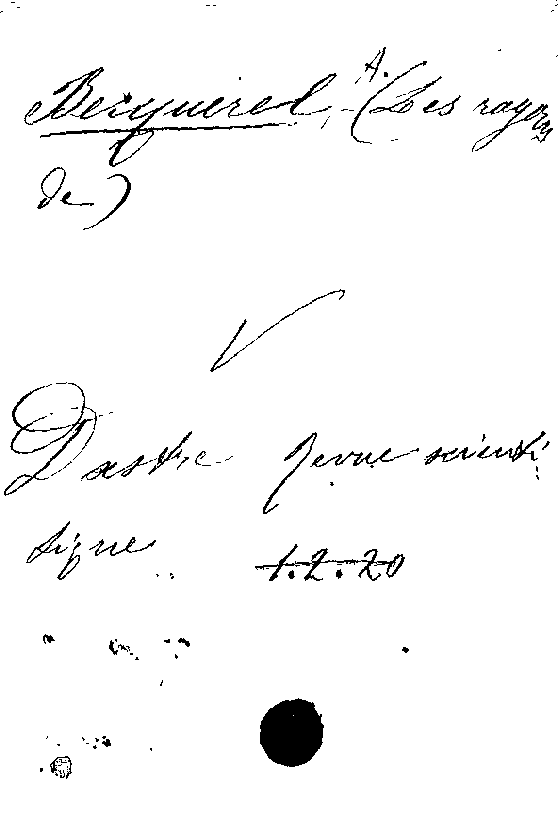 Becquerel, A. (Les rayons
de)
Dastre Revue scienti
fique
1.2.20